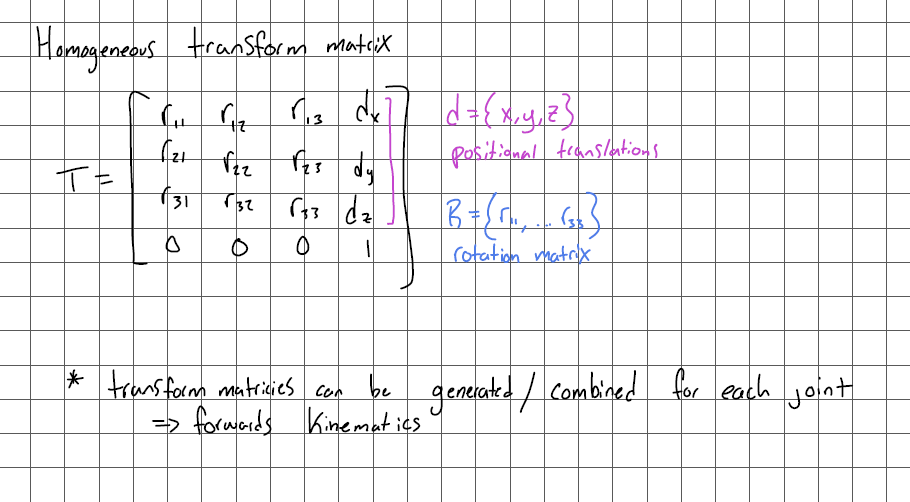 Homogeneous transform matrix
T = [ r11 r12 r13 dx
r21 r22 r23 dy
r31 r32 r33 dz
0 0 0 1 ]
d = {x,y,z}
positional translations
R = {r11, ... r33}
rotation matrix
* transform matricies can be generated / combined for each joint
⇒ forwards Kinematics